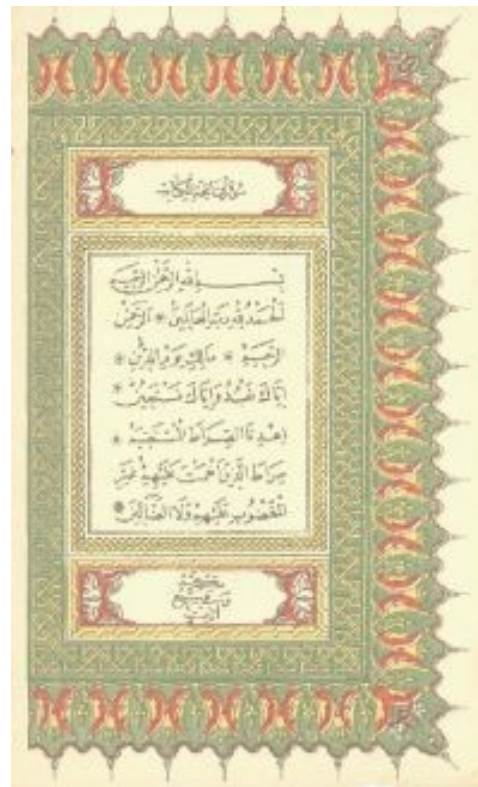 سورة فاتحة الكتاب
بسم الله الرحمن الرحيم
الحمد لله رب العالمين * الرحمن
الرحيم * مالك يوم الدين *
اياك نعبد واياك نستعين *
اهدنا الصراط المستقيم *
صراط الذين انعمت عليهم غير
المغضوب عليهم ولا الضالين *
مكية
وهي سبع
آيات